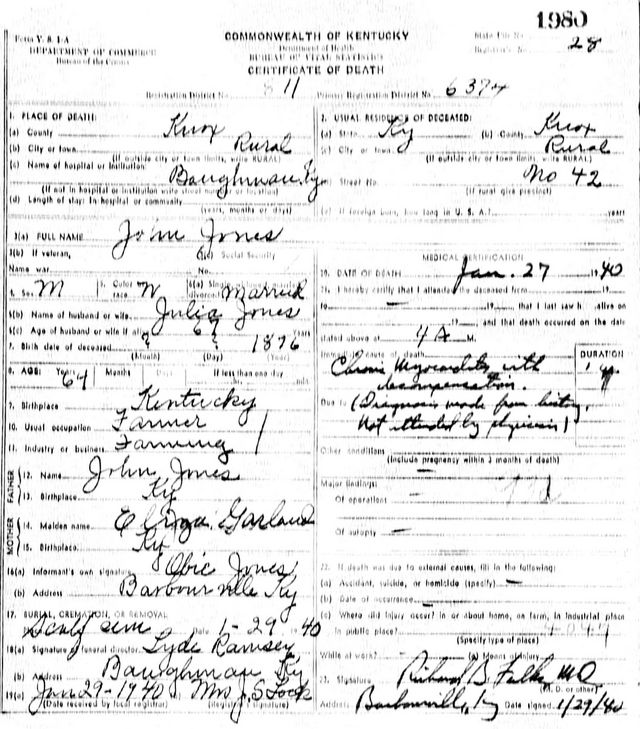 1980
Form V. S. 1-A
DEPARTMENT OF COMMERCE
Bureau of the Census
COMMONWEALTH OF KENTUCKY
Department of Health
BUREAU OF VITAL STATISTICS
CERTIFICATE OF DEATH
State File No.
Registrar's No. 28
Registration District No. 811
Primary Registration District No. 6374
1. PLACE OF DEATH:
(a) County Knox
(b) City or town Rural
(If outside city or town limits, write RURAL)
(c) Name of hospital or institution:
Baughman, Ky
(If not in hospital or institution write street number or location)
(d) Length of stay: In hospital or community
(years, months or days)
2. USUAL RESIDENCE OF DECEASED:
(a) State Ky (b) County Knox
(c) City or town Rural
(If outside city or town limits, write RURAL)
(d) Street No. No 42
(If rural give precinct)
(e) If foreign born, how long in U. S. A.? years
3(a) FULL NAME John Jones
3(b) If veteran,
Name war
3(c) Social Security
No.
4. Sex M 5. Color or race W 6(a) Single, married, divorced Married
6(b) Name of husband or wife Julia Jones
6(c) Age of husband or wife if alive 67 years
7. Birth date of deceased ? ? 1876
(Month) (Day) (Year)
8. AGE: Years 64 Months Days If less than one day
hr. min.
9. Birthplace Kentucky
10. Usual occupation Farmer
11. Industry or business Farming
FATHER
12. Name John Jones
13. Birthplace Ky
MOTHER
14. Maiden name Garland
15. Birthplace Ky
16(a) Informant's own signature Obie Jones
(b) Address Barbourville Ky
17. BURIAL, CREMATION, OR REMOVAL
cem Date 1-29 1940
18(a) Signature of funeral director Lyde Ramsey
(b) Address Baughman Ky
19(a) Jan 29-1940 Mrs J. S. Lock
(Date received by local registrar) (Registrar's signature)
MEDICAL CERTIFICATION
20. DATE OF DEATH Jan. 27 1940
21. I hereby certify that I attended the deceased from 19
to — 19 , that I last saw h alive on
19 , and that death occurred on the date
stated above at 4 A M.
Immediate cause of death
DURATION
Chronic Myocarditis with
decompensation.
Due to (Diagnosis made from history,
Not attended by physician)
Other conditions
(Include pregnancy within 3 months of death)
Major findings:
Of operations —
Of autopsy —
22. If death was due to external causes, fill in the following:
(a) Accident, suicide, or homicide (specify) —
(b) Date of occurrence —
(c) Where did injury occur? in or about home, on farm, in industrial place
in public place?
(Specify type of place)
While at work? — (e) Means of injury
23. Signature Richard B. MD
(M. D. or other)
Address Barbourville, Ky Date signed 1/29/40